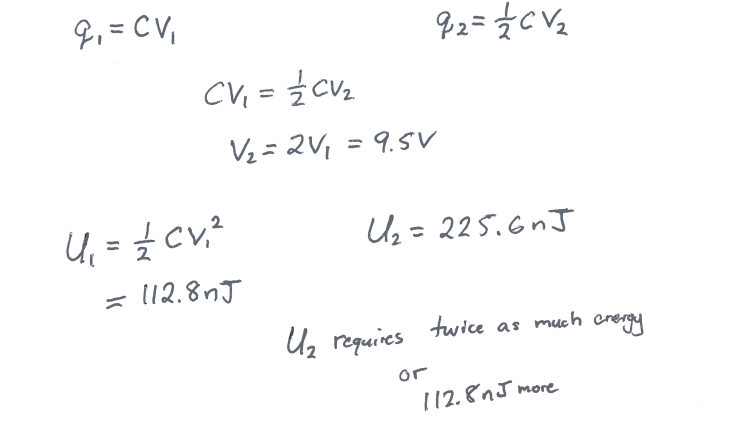 q₁ = CV₁
q₂ = ½ CV₂
CV₁ = ½ CV₂
V₂ = 2V₁ = 9.5V
U₁ = ½ CV₁²
= 112.8nJ
U₂ = 225.6nJ
U₂ requires twice as much energy
or
112.8nJ more